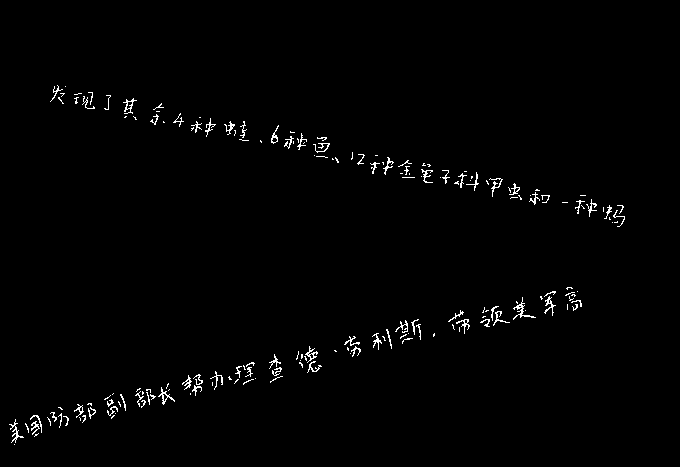 发现了其余4种蛙、6种鱼、12种金龟子科甲虫和一种蚂
美国防部副部长帮办理查德·劳利斯,带领美军高